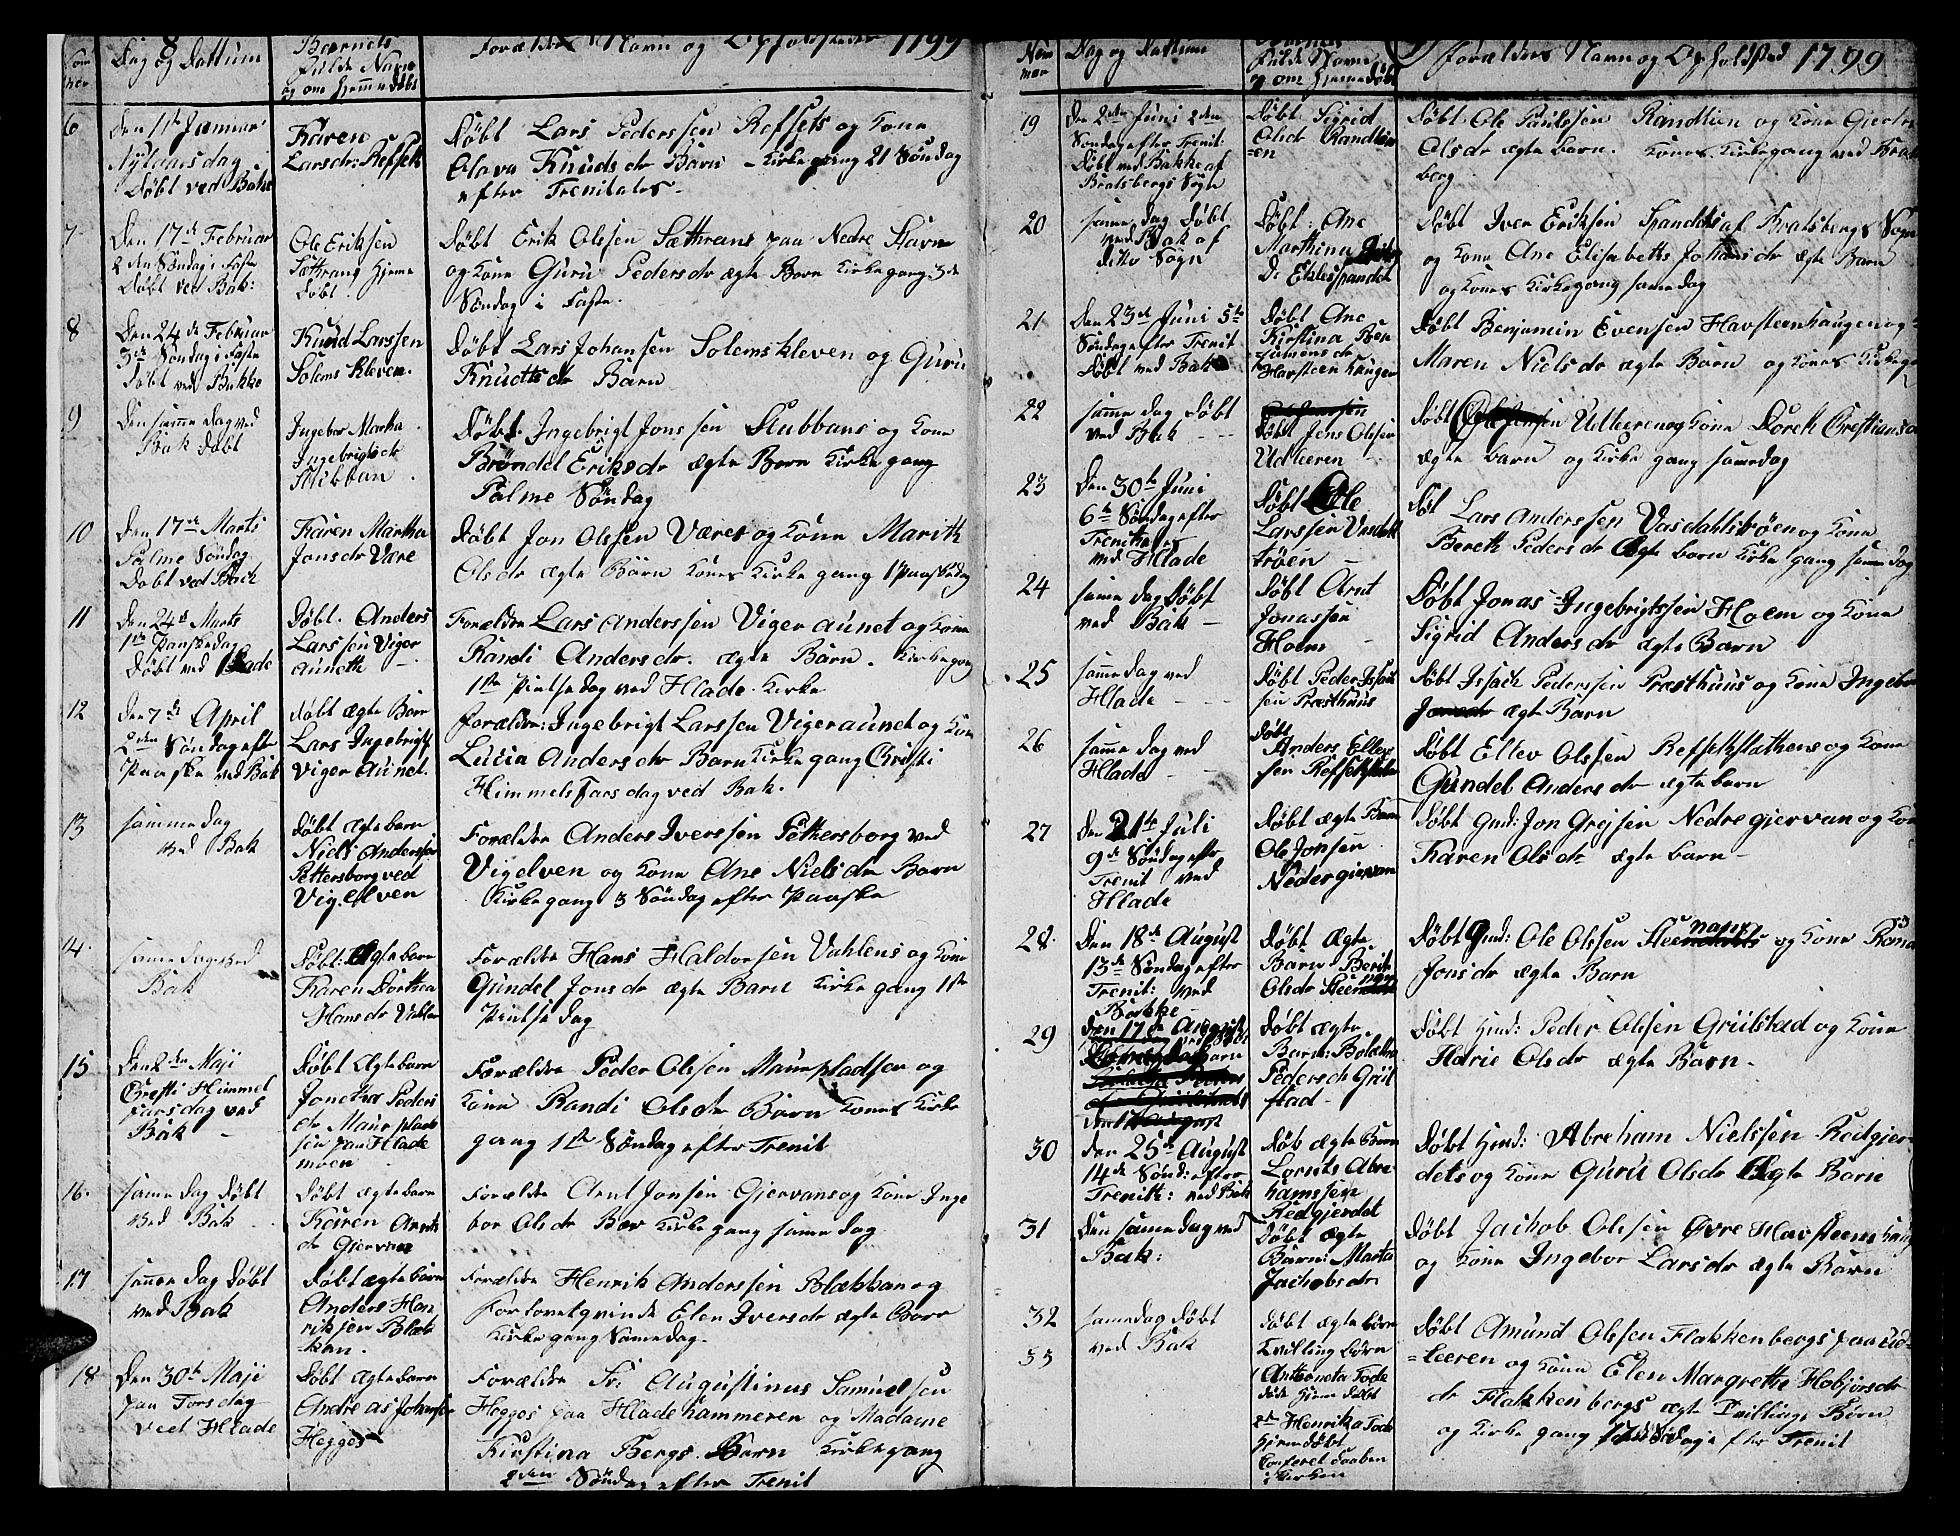 8
Dag og Dattum
Barnets
Fulde Navn
og om hjemmedøbt
Forældres Navn og Opholdsted 1799
6
Den 1ste Januar
Nytaarsdag
Døbt ved Bakke
Karen
Larsdr: Refsets
Døbt Lars Pederssen Refsets og Kone
Olava Knudsdr Barn - Kirkegang 21 Søndag
efter Trenitates
7
Den 17de Februar
2den Søndag i Faste
Døbt ved Bak:
Ole Eriksen
Sæthrang hjeme
døbt
Døbt Erik Olssen Sæthrans paa Nedre Stavne
og Kone Guru Pedersdr ægte Barn Kirkegang 3de
Søndag i Faste.
8
Den 24de Februar
3de Søndag i Faste
Døbt ved Bakke
Knud Larssen
Solemskleven.
Døbt Lars Johansen Solemskleven og Guru
Knudtsdr Barn
9
Den samme dag ved
Bak døbt
Ingebor Martha
Ingebrigtsdr
Stubban
Døbt Ingebrigt Jonssen Stubbans og Kone
Brøndel Eriksdr ægte Barn Kirkegang
Palme Søndag
10
Den 17de Marts
Palme Søndag
Døbt ved Back
Karen Martha
Jonsdr Være
Døbt Jon Olssen Væres og Kone Marith
Olsdr ægte Barn Kones Kirkegang 1 Paaskedag
11
Den 24de Marts
1ste Paaskedag
Døbt ved Hlade
Døbt. Anders
Larssen Viger
auneth
Forældre Lars Anderssen Vigeraunet og Kone
Randi Andersdr. ægte Barn. Kirkegang
1ste Pintsedag ved Hlade Kirke
12
Den 7de April
2den Søndag efter
Paaske ved Bak
døbt ægte Barn
Lars Ingebrigts
Viger aunet.
Forældre: Ingebrigt Larssen Vigeraunet og Kone
Lucia Andersdr Barn Kirkegang Christi
Himmelsfarsdag ved Bak.
13
samme dag
ved Bak
døbt ægte barn
Niels Anderssen
Pettersborg ved
Vigelven
Forældre Anders Iverssen Pettersborg ved
Vigelven og Kone Ane Nielsdr Barn
Kirkegang 3 Søndag efter Paaske
14.
samme dag ved
Bak
Døbt: Ægte barn
Karen Dorthea
Hansdr Vahlen
Forældre Hans Haldorsen Vahlens og Kone
Gundel Jonsdr ægte Barn Kirkegang 1ste
Pintsedag
15
Den 2den Maji
Cresti Himmel
farsdag ved
Bak
Døbt Ægte barn
Jonetha Peders
dr Maurplads
sen paa Hlade
moen
Forældre Peder Olssen Maurpladsen og
Kone Randi Olsdr Barn Kones Kirke
gang 1ste Søndag efter Trenit
16.
samme dag døbt
ved Bak
Døbt ægte barn
Karen Arnts
dr Gjervan
Forældre Arnt Jonsen Gjervans og Kone Inge
bor Olsdr Barn Kirkegang samme dag
17
samme dag døbt
ved Bak
Døbt ægte barn
Anders Hen
riksen Blæk
kan.
Forældre Henrik Anderssen Blækkan og
Forlovetqvinde Elen Iversdr ægte Barn
Kirkegang Samme dag.
18
Den 30te Maji
paa Torsdag
ved Hlade
Døbt ægte barn
Andreas Johansen
Hegges
Forældre Sr. Augustinus Samuelsen
Hegges paa Hladehammeren og Madame
Kirstina Bergs Barn Kirkegang
2den Søndag efter Trenit
Num
mer
Dag og Dattum
Fulde Navn
og om hjemedøbt
Forældres Navn og Opholdsted 1799
19
Den 2den Juni 2den
Søndag efter Trenit:
Døbt ved Bakke af
Bratsbergs Sogn
Døbt Sigrid
Olsdr Randlien
Døbt Ole Paulssen Randlien og Kone Gjertru
Olsdr ægte barn. Kones Kirkegang ved Brats
berg
20
samme dag døbt
ved Bak af
ditto Sogn
Døbt: Ane
Marthina
Døbt Iver Eriksen af Bratsbergs Sogn
og Kone Ane Elisabeth ægte Barn
og Kones Kirkegang same dag
21
Den 23de Juni 5te
Søndag efter Trenit
Døbt ved Bak
Døbt Ane
Kirstina Ben
jamensdr
Havsteenhaugen
Døbt Benjamin Evensen Havsteenhaugen og
Maren Nielsdr ægte Barn og Kones Kirkegan
22
samme dag døbt
ved Bak
Døbt Jens Olssen
Udleeren
døbt Udleeren og Kone Doreth Crestians
ægte barn og Kirkegang same dag
23
Den 30te Juni
6te Søndag efter
Trenitates
ved Hlade
Døbt Ole
Larssen Vasdals
trøen
Døbt Lars Anderssen Vasdahlstrøen og Kone
Bereth Pedersdr Ægte barn Kirkegang samme dag
24
samme dag døbt
ved Bak
Døbt Arnt
Jonassen
Holm
Døbt Jonas Ingebrigtssen Holm og Kone
Sigrid Andersdr ægte Barn
25
samme dag ved
Hlade
Døbt Peder Isach
sen Præsthuus
Døbt Isach Pederssen Præsthuus og Kone Ingebor
ægte Barn
26
samme dag ved
Hlade
Døbt
Anders Ellev
sen
Døbt Ellev Olssen og Kone
Gundel Andersdr ægte barn
27
Den 21te Juli
9de Søndag efter
Trenit ved
Hlade
Døbt ægte Barn
Ole Jonsen
Nedergjervan
Døbt Gud: Jon Grejsen Nedregjervan og Kone
Karen Olsdr ægte barn
28.
Den 18de August
13de Søndag efter
Trenit: ved
Bakke
Døbt ægte
Barn Berit
Olsdr
Døbt Gud: Ole Olssen og Kone
Jonsdr ægte Barn
29
den 17de August
Døbt ægte
Barn: Bolethe
Pedersdr Gril
stad
Døbt hind: Peder Olssen Grilstad og Kone
Marie Olsdr ægte Barn.
30
Den 25de August
14de Sønd: efter
Trenit: ved Bak
Døb ægte Barn
Lornts Abra
hamssen
Rødgjerdet
Døbt hind: Abraham Nielssen Rødgjer
dets og Kone Guru Olsdr Ægte Barn
31
Den samme dag ved
Bak:
Døbt ægte
Barn: Marta
Jachobsdr
Døbt Jachob Olssen Øvre Havsteens
og Kone Ingebor Larsdr ægte Barn
32
samme dag døbt
ved Bak
33
Døbt ægte børn
Tvilling børn
Antoneta
hjeme døbt
2de Henrika
hjemedøbt
Confereret daaben
i Kirken
Døbt Amund Olssen Flakkenbergs paa Ud=
=leeren og Kone Elen Margrethe
dr Flakkenbergs ægte Tvillings Børn
og Kirkegang efter Trenit